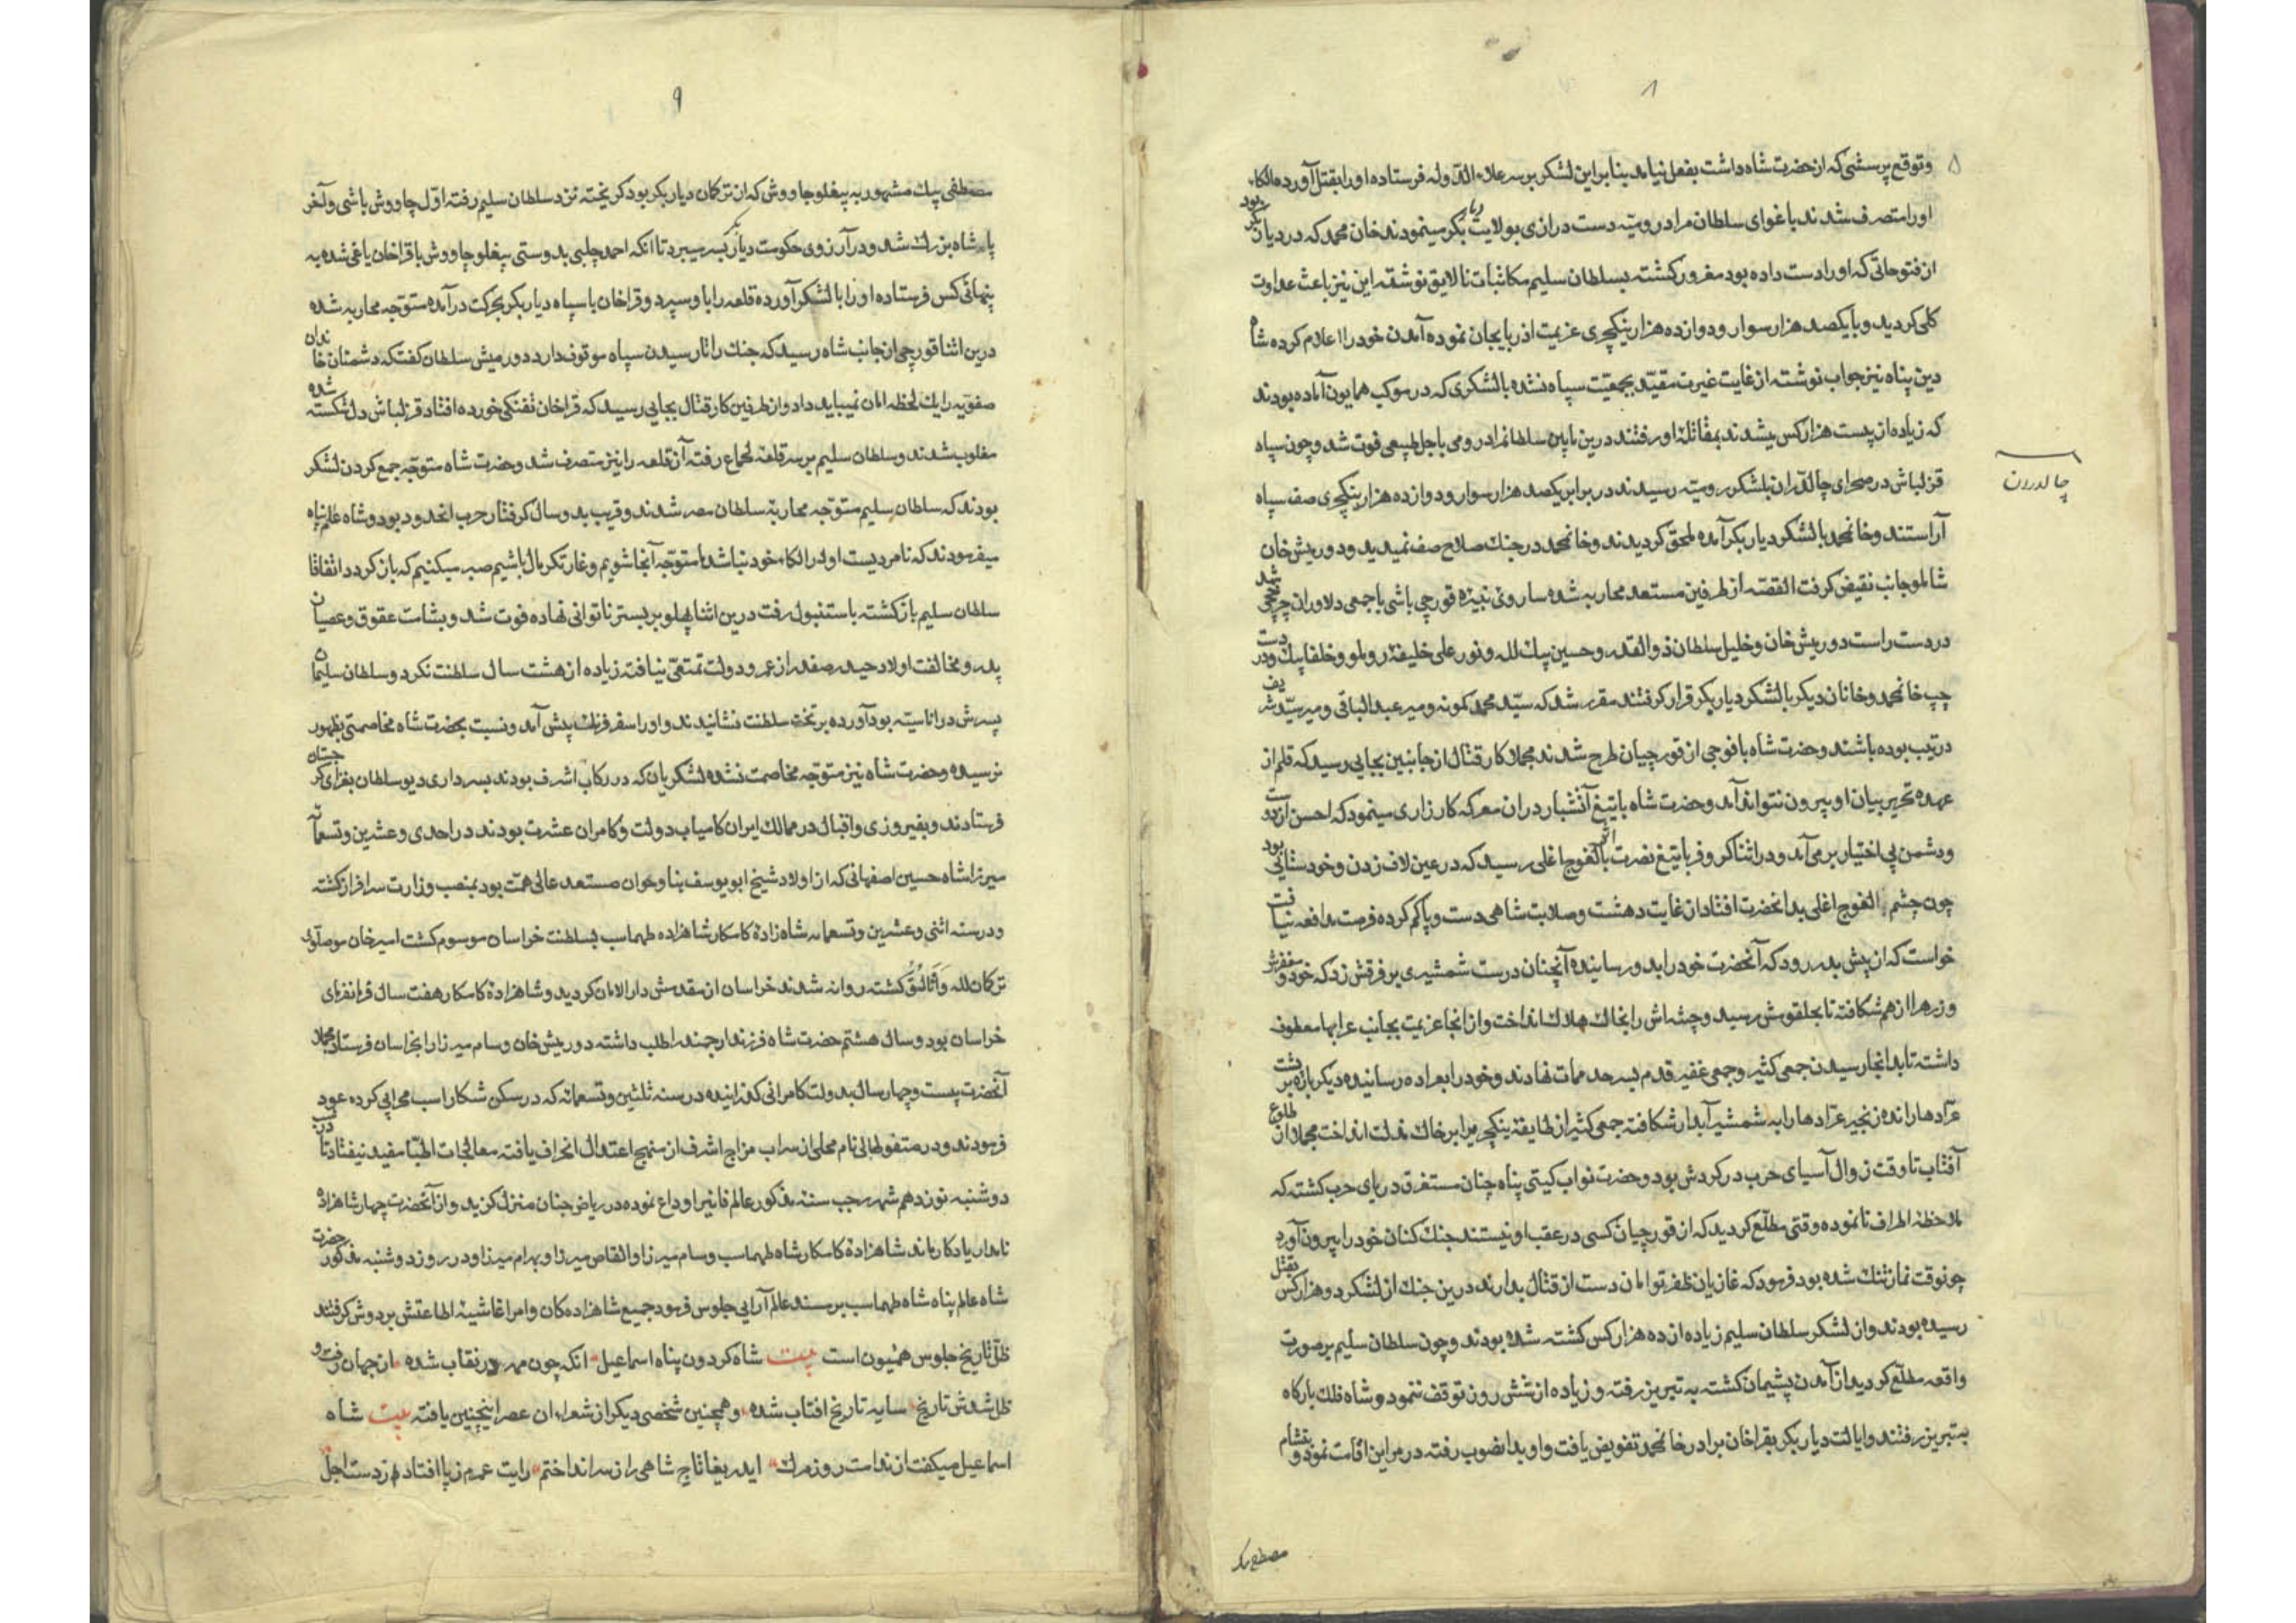 ۸
وتوقع پرسشی که از حضرت شاه داشت بفعل نیامد بنابراین لشکر بر سر علاء الدوله فرستاده او را بقتل آورده الکاء
او را متصرف شدند باغوای سلطان مراد رومیه دست درازی بولایت دیار بکر مینمودند خان محمد که در دیار بکر بود
از فتوحاتی که او را دست داده بود مغرور کشته بسلطان سلیم مکاتبات نالایق نوشته این نیز باعث عداوت
کلی کردید و با یکصد هزار سوار و دوازده هزار ینکچری عزیمت اذربایجان نموده آمدن خود را اعلام کرده شاه
دین پناه نیز جواب نوشته از غایت غیرت مقید بجمعیت سپاه نشده بالشکری که در موکب همایون آماده بودند
که زیاده از بیست هزار کس میشدند بمقاتلهٔ او رفتند درین مابین سلطانمراد رومی باجل طبیعی فوت شد و چون سپاه
قزلباش در صحرای چالدران بلشکر رومیه رسیدند در برابر یکصد هزار سوار و دوازده هزار ینکچری صف سپاه
چالدران
آراستند و خانمحمد بالشکر دیار بکر آمده ملحق کردیدند و خانمحمد در جنک صلاح صف نمیدید و دورمیش خان
شاملو جانب نقیض کرفت القصه از طرفین مستعد محاربه شده ساروی نبیره قورچی باشی با جمعی دلاوران چرخچی شد
در دست راست دورمیش خان و خلیل سلطان ذوالقدر و حسین بیک لله و نور علی خلیفهٔ روملو و خلفا بیک و در دست
چپ خانمحمد و خانان دیکر بالشکر دیار بکر قرار کرفتند مقرر شد که سید محمد کمونه و میر عبدالباقی و میر سید شریف
در تیب بوده باشند و حضرت شاه با فوجی از قورچیان طرح شدند مجملا کار قتال از جانبین بجایی رسید که قلم از
عهده تحریر بیان او بیرون نتواند آمد و حضرت شاه با تیغ آتشبار در ان معرکه کارزاری مینمود که احسن از دوست
و دشمن بی اختیار بر می‌آمد و در اثنا کر و فر با تیغ نصرت اثر بالغوج اغلی رسید که در عین لاف زدن و خودستائی بود
چون چشم الغوج اغلی بدانحضرت افتاد از غایت دهشت و صلابت شاهی دست و پا کم کرده فرصت مدافعه نیافت
خواست که از پیش بدر رود که آنحضرت خود را بدو رسانیده آنچنان درست شمشیری بر فرقش زد که خود و مغفرش
و زره را از هم شکافته تا بحلقومش رسید و جثه اش را بخاک هلاک انداخت و از انجا عزیمت بجانب عرابها معطوف
داشته تا بدانجا رسیدن جمعی کثیر و جمعی غفیر قدم بسرحد ممات نهادند و خود را بعراده رسانیده دیکر باره بر پشت
عرادها رانده زنجیر عرادها را به شمشیر آبدار شکافته جمعی کثیر از طایفهٔ ینکچریرا بر خاک مذلت انداخت مجملا از طلوع
آفتاب تا وقت زوال آسیای حرب در کردش بود و حضرت نواب کیتی پناه چنان مستغرق دریای حرب کشته که
ملاحظه اطراف نانموده وقتی مطلع کردید که از قورچیان کسی در عقب او نیستند جنک کنان خود را بیرون آورد
چونوقت نماز تنک شده بود فرمود که غازیان ظفر توامان دست از قتال بدارند درین جنک از لشکر دو هزار کس بقتل
رسیده بودند و از لشکر سلطان سلیم زیاده از ده هزار کس کشته شده بودند و چون سلطان سلیم بر صورت
واقعه مطلع کردید از آمدن پشیمان کشته به تبریز رفته و زیاده از شش روز توقف ننمود و شاه فلک بارکاه
به تبریز رفتند و ایالت دیار بکر بقراخان برادر خانمحمد تفویض یافت و او بدانصوب رفته در مراین اقامت نمود و بقشام
مصطفی بیک
۹
مصطفی بیک مشهور به بیغلو چاووش که از ترکان دیار بکر بود کریخته نزد سلطان سلیم رفته اول چاووش باشی و آخر
پاشاه بزرک شد و در آرزوی حکومت دیار بکر بسر میبرد تا انکه احمد چلبی بدوستی بیغلو چاووش با قراخان یاغی شده به
پنهائی کس فرستاده او را بالشکر آورده قلعه را باو سپرد و قراخان با سپاه دیار بکر بحرکت درآمده متوجه محاربه شده
درین اثنا قورچی از جانب شاه رسید که جنک را تا رسیدن سپاه موقوف دارد دورمیش سلطان کفت که دشمنان خاندان
صفویه را یک لحظه امان نمیباید داد و از طرفین کار قتال بجایی رسید که قراخان تفنکی خورده افتاد قزلباش دل شکسته شده
مغلوب شدند و سلطان سلیم بر سر قلعه لحماع رفته آن قلعه را نیز متصرف شد و حضرت شاه متوجه جمع کردن لشکر
بودند که سلطان سلیم متوجه محاربهٔ سلطان مصر شدند و قریب بدو سال کرفتار حرب انحدود بود و شاه علم پناه
میفرمودند که نامردیست او در الکاء خود نباشد ما متوجه آنجا شویم و غارتکر مال باشیم صبر میکنیم که باز کردد اتفاقا
سلطان سلیم باز کشته باستنبول رفت درین اثنا پهلو بر بستر ناتوانی نهاده فوت شد و بشامت عقوق و عصیان
پدر و مخالفت اولاد حیدر صفدر از عمر و دولت تمتعی نیافته زیاده از هشت سال سلطنت نکرد و سلطان سلیمان
پسرش در اناسیه بود آورده بر تخت سلطنت نشانیدند و او را سفر فرنک پیش آمد و نسبت بحضرت شاه مخاصمتی بظهور
نرسیده و حضرت شاه نیز متوجه مخاصمت نشده لشکریان که در رکاب اشرف بودند بسرداری دیو سلطان بغزای کرجستان
فرستادند و بفیروزی و اقبال در ممالک ایران کامیاب دولت و کامران عشرت بودند در احدی و عشرین و تسعمائه
میرزا شاه حسین اصفهانی که از اولاد شیخ ابو یوسف بنا و جوان مستعد عالی همت بود بمنصب وزارت سرافراز کشته
و در سنه اثنی و عشرین و تسعمائه شاه زادهٔ کامکار شاهزاده طهماسب بسلطنت خراسان موسوم کشت امیر خان موصلو
ترکان لله و اتالیق کشته روانه شدند خراسان از مقدمش دار الامان کردید و شاهزادهٔ کامکار هفت سال فرمانفرمای
خراسان بود و سال هشتم حضرت شاه فرزند ارجمند را طلب داشته دورمیش خان و سام میرزا را بخراسان فرستاد مجملا
آنحضرت بیست و چهار سال بدولت کامرانی کذرانیده در سنه ثلثین و تسعمائه که در سکن شکار اسب صحرایی کرده عود
فرمودند و در متغوطالی نام محلی از سراب مزاج اشرف از منهج اعتدال انحراف یافته معالجات اطبا مفید نیفتاد تا در شب
دوشنبه نوزدهم شهر رجب سنه مذکور عالم فانیرا وداع نموده در ریاض جنان منزل کزید و از آنحضرت چهار شاهزاده
نامدار یادکار ماند شاهزادهٔ کامکار شاه طهماسب و سام میرزا و القاص میرزا و بهرام میرزا و در روز دوشنبه مذکور حضرت
شاه عالم پناه شاه طهماسب بر مسند عالم آرایی جلوس فرمود جمیع شاهزاده کان و امرا غاشیهٔ اطاعتش بر دوش کرفتند
ظل تاریخ جلوس همیون است بیت شاه کردون پناه اسماعیل انکه چون مهر در نقاب شده از جهان رفت و
ظل شدش تاریخ سایه تاریخ افتاب شده و همچنین شخصی دیکر از شعراء ان عصر اینچنین یافته بیت شاه
اسماعیل میکفت از ندامت روز مرک ایدریغا تاج شاهی را ز سر انداختم رایت عمرم ز پا افتاد از دست اجل